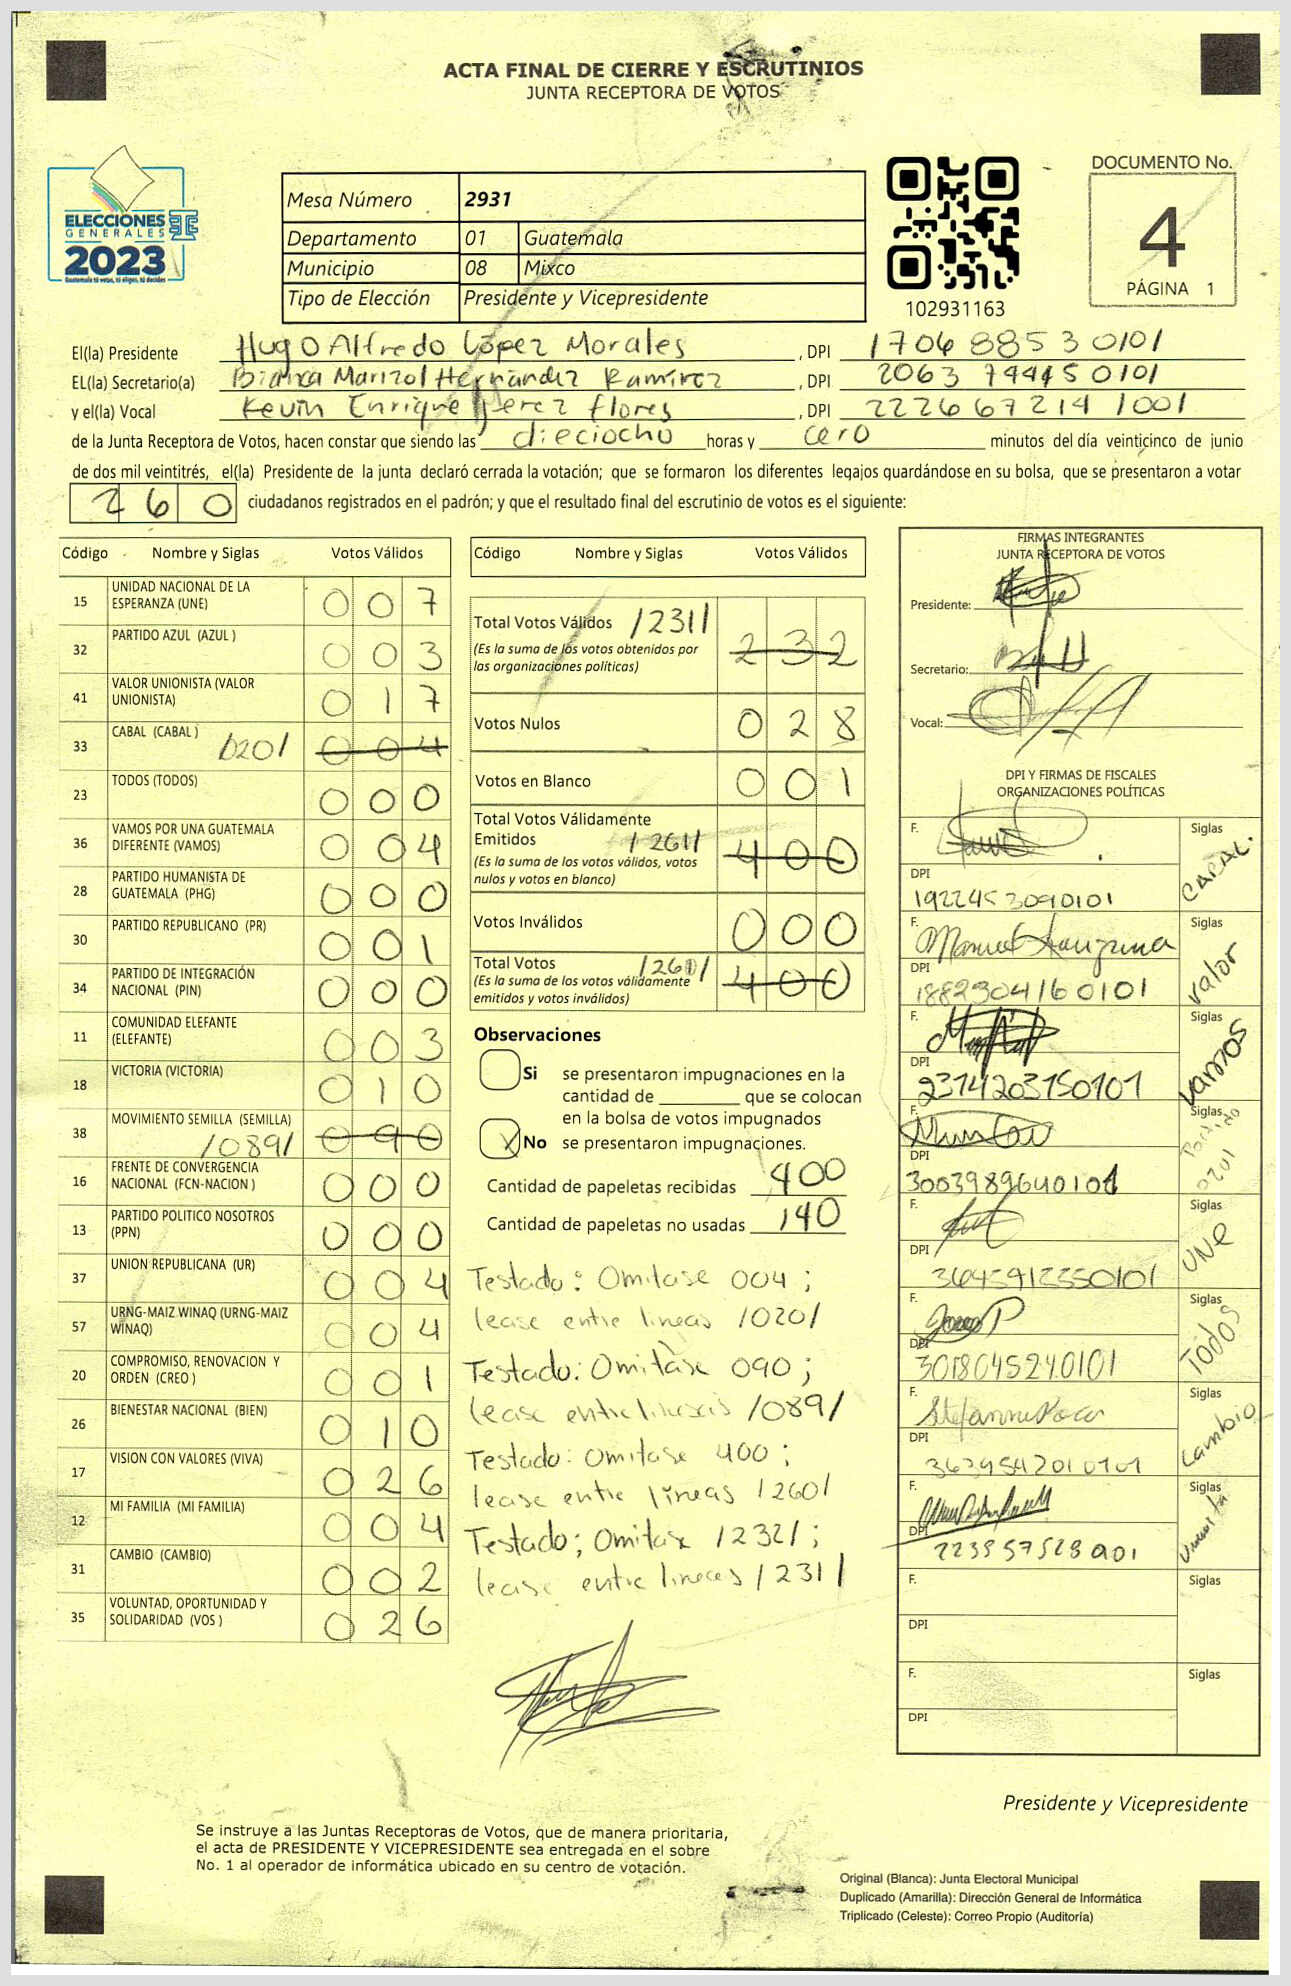 ACTA FINAL DE CIERRE Y ESCRUTINIOS
JUNTA RECEPTORA DE VOTOS
ELECCIONES
GENERALES
2023
Guatemala tú votas, tú eliges, tú decides
Mesa Número 2931
Departamento 01 Guatemala
Municipio 08 Mixco
Tipo de Elección Presidente y Vicepresidente
102931163
DOCUMENTO No.
4
PÁGINA 1
El(la) Presidente Hugo Alfredo López Morales, DPI 1706 8853 0101
EL(la) Secretario(a) Bianca Marizol Hernández Ramírez, DPI 2063 74445 0101
y el(la) Vocal Kevin Enrique Perez flores, DPI 2226 67214 1001
de la Junta Receptora de Votos, hacen constar que siendo las dieciocho horas y cero minutos del día veinticinco de junio
de dos mil veintitrés, el(la) Presidente de la junta declaró cerrada la votación; que se formaron los diferentes legajos guardándose en su bolsa, que se presentaron a votar
260 ciudadanos registrados en el padrón; y que el resultado final del escrutinio de votos es el siguiente:
Código Nombre y Siglas Votos Válidos
15 UNIDAD NACIONAL DE LA ESPERANZA (UNE) 007
32 PARTIDO AZUL (AZUL ) 003
41 VALOR UNIONISTA (VALOR UNIONISTA) 017
33 CABAL (CABAL ) /020/ 004
23 TODOS (TODOS) 000
36 VAMOS POR UNA GUATEMALA DIFERENTE (VAMOS) 004
28 PARTIDO HUMANISTA DE GUATEMALA (PHG) 000
30 PARTIDO REPUBLICANO (PR) 001
34 PARTIDO DE INTEGRACIÓN NACIONAL (PIN) 000
11 COMUNIDAD ELEFANTE (ELEFANTE) 003
18 VICTORIA (VICTORIA) 010
38 MOVIMIENTO SEMILLA (SEMILLA) /089/ 090
16 FRENTE DE CONVERGENCIA NACIONAL (FCN-NACION ) 000
13 PARTIDO POLITICO NOSOTROS (PPN) 000
37 UNION REPUBLICANA (UR) 004
57 URNG-MAIZ WINAQ (URNG-MAIZ WINAQ) 004
20 COMPROMISO, RENOVACION Y ORDEN (CREO ) 001
26 BIENESTAR NACIONAL (BIEN) 010
17 VISION CON VALORES (VIVA) 026
12 MI FAMILIA (MI FAMILIA) 004
31 CAMBIO (CAMBIO) 002
35 VOLUNTAD, OPORTUNIDAD Y SOLIDARIDAD (VOS ) 026
Código Nombre y Siglas Votos Válidos
Total Votos Válidos /231/ 232
(Es la suma de los votos obtenidos por
las organizaciones políticas)
Votos Nulos 028
Votos en Blanco 001
Total Votos Válidamente
Emitidos /261/ 400
(Es la suma de los votos válidos, votos
nulos y votos en blanco)
Votos Inválidos 000
Total Votos 400
(Es la suma de los votos válidamente
emitidos y votos inválidos)
Observaciones
Si se presentaron impugnaciones en la
cantidad de ________ que se colocan
en la bolsa de votos impugnados
X No se presentaron impugnaciones.
Cantidad de papeletas recibidas 400
Cantidad de papeletas no usadas 140
Testado: Omitase 004;
lease entre lineas /020/
Testado: Omitase 090;
lease entre lineas /089/
Testado: Omitase 400;
lease entre líneas /260/
Testado; Omitase /232/;
lease entre lineas /231/
FIRMAS INTEGRANTES
JUNTA RECEPTORA DE VOTOS
Presidente:
Secretario:
Vocal:
DPI Y FIRMAS DE FISCALES
ORGANIZACIONES POLÍTICAS
F. Siglas CABAL.
DPI 1922453090101
F. Siglas valor
DPI 1882304160101
F. Siglas vamos
DPI 2314203150101
F. Siglas
DPI 3003989640101
F. Siglas UNE
DPI 3645912550101
F. Siglas Todos
DPI 3018045240101
F. Siglas Cambio
DPI
F. Siglas
DPI
F. Siglas
DPI
F. Siglas
DPI
Presidente y Vicepresidente
Se instruye a las Juntas Receptoras de Votos, que de manera prioritaria,
el acta de PRESIDENTE Y VICEPRESIDENTE sea entregada en el sobre
No. 1 al operador de informática ubicado en su centro de votación.
Original (Blanca): Junta Electoral Municipal
Duplicado (Amarilla): Dirección General de Informática
Triplicado (Celeste): Correo Propio (Auditoría)